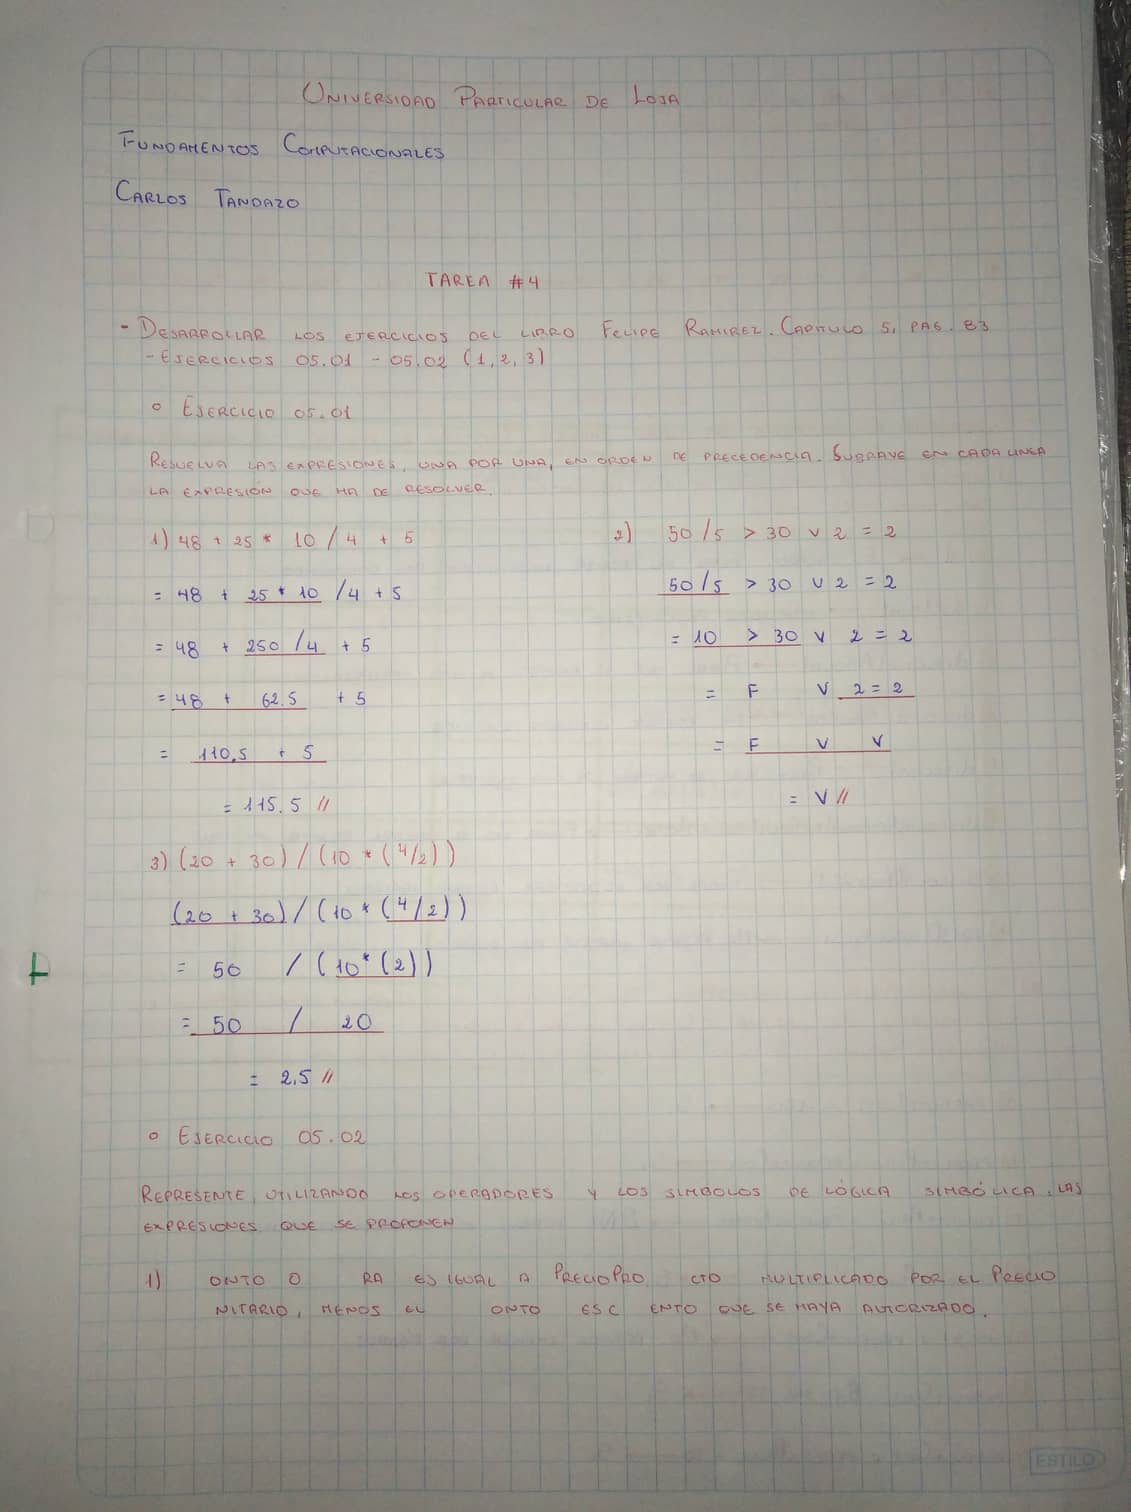 UNIVERSIDAD PARTICULAR DE LOJA
FUNDAMENTOS COMPUTACIONALES
CARLOS TANDAZO
TAREA #4
- DESARROLLAR LOS EJERCICIOS DEL LIBRO FELIPE RAMIREZ. CAPITULO 5, PAG. 83
- EJERCICIOS 05.01 - 05.02 (1, 2, 3)
○ EJERCICIO 05.01
RESUELVA LAS EXPRESIONES, UNA POR UNA, EN ORDEN DE PRECEDENCIA. SUBRAYE EN CADA LINEA
LA EXPRESIÓN QUE HA DE RESOLVER.
1) 48 + 25 * 10 / 4 + 5
= 48 + 25 * 10 / 4 + 5
= 48 + 250 / 4 + 5
= 48 + 62.5 + 5
= 110,5 + 5
= 115.5 //
2) 50 / 5 > 30 ∨ 2 = 2
50 / 5 > 30 ∨ 2 = 2
= 10 > 30 ∨ 2 = 2
= F ∨ 2 = 2
= F ∨ V
= V //
3) (20 + 30) / (10 * (4/2))
(20 + 30) / (10 * (4/2))
= 50 / (10 * (2))
= 50 / 20
= 2,5 //
○ EJERCICIO 05.02
REPRESENTE, UTILIZANDO LOS OPERADORES Y LOS SIMBOLOS DE LÓGICA SIMBÓLICA, LAS
EXPRESIONES QUE SE PROPONEN
1) ONTO O RA ES IGUAL A PRECIOPRO CTO MULTIPLICADO POR EL PRECIO
NITARIO, MENOS EL ONTO ESC ENTO QUE SE HAYA AUTORIZADO.
ESTILO